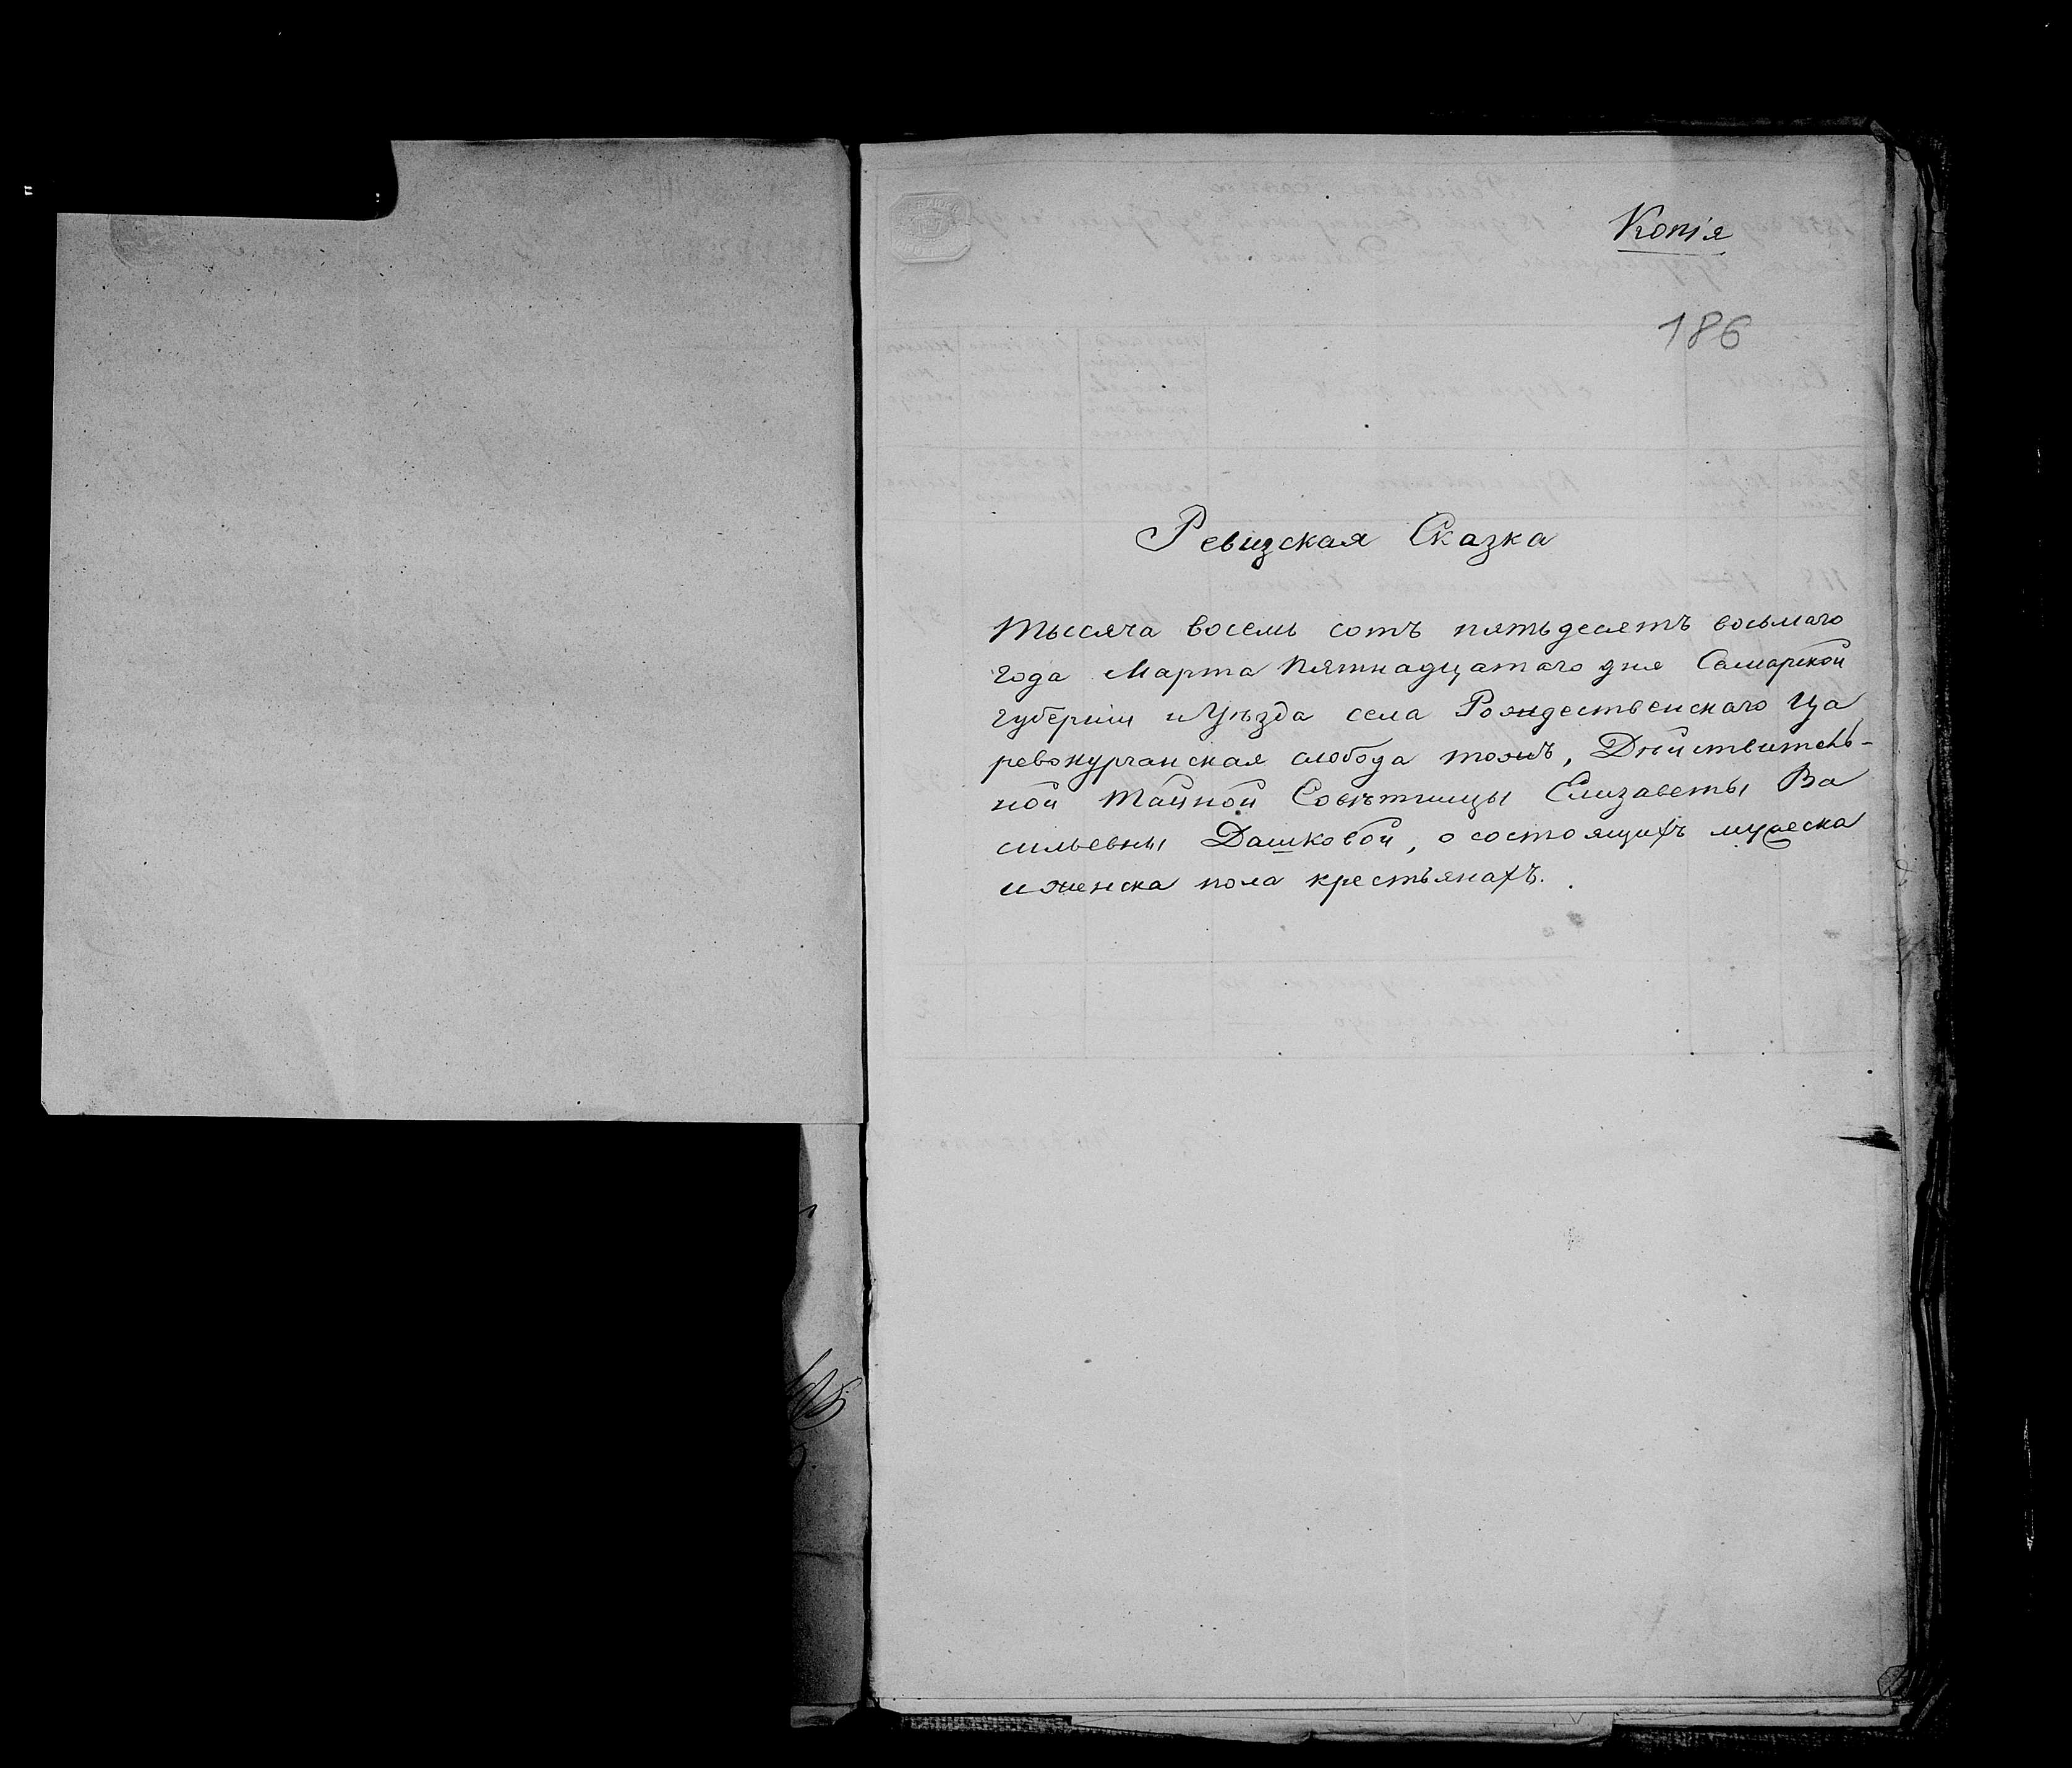 Копія
186
Ревизская Сказка
Тысяча восемь сотъ пятьдесятъ восьмаго
года Марта пятнадцатаго дня Самарской
губерніи и Уѣзда села Рождественскаго Ца
ревокурганская слобода тожъ, Дѣйствитель-
ной Тайной Совѣтницы Елизаветы Ва
сильевны Дашковой, о состоящихъ мужеска
и женска пола крестьянахъ.